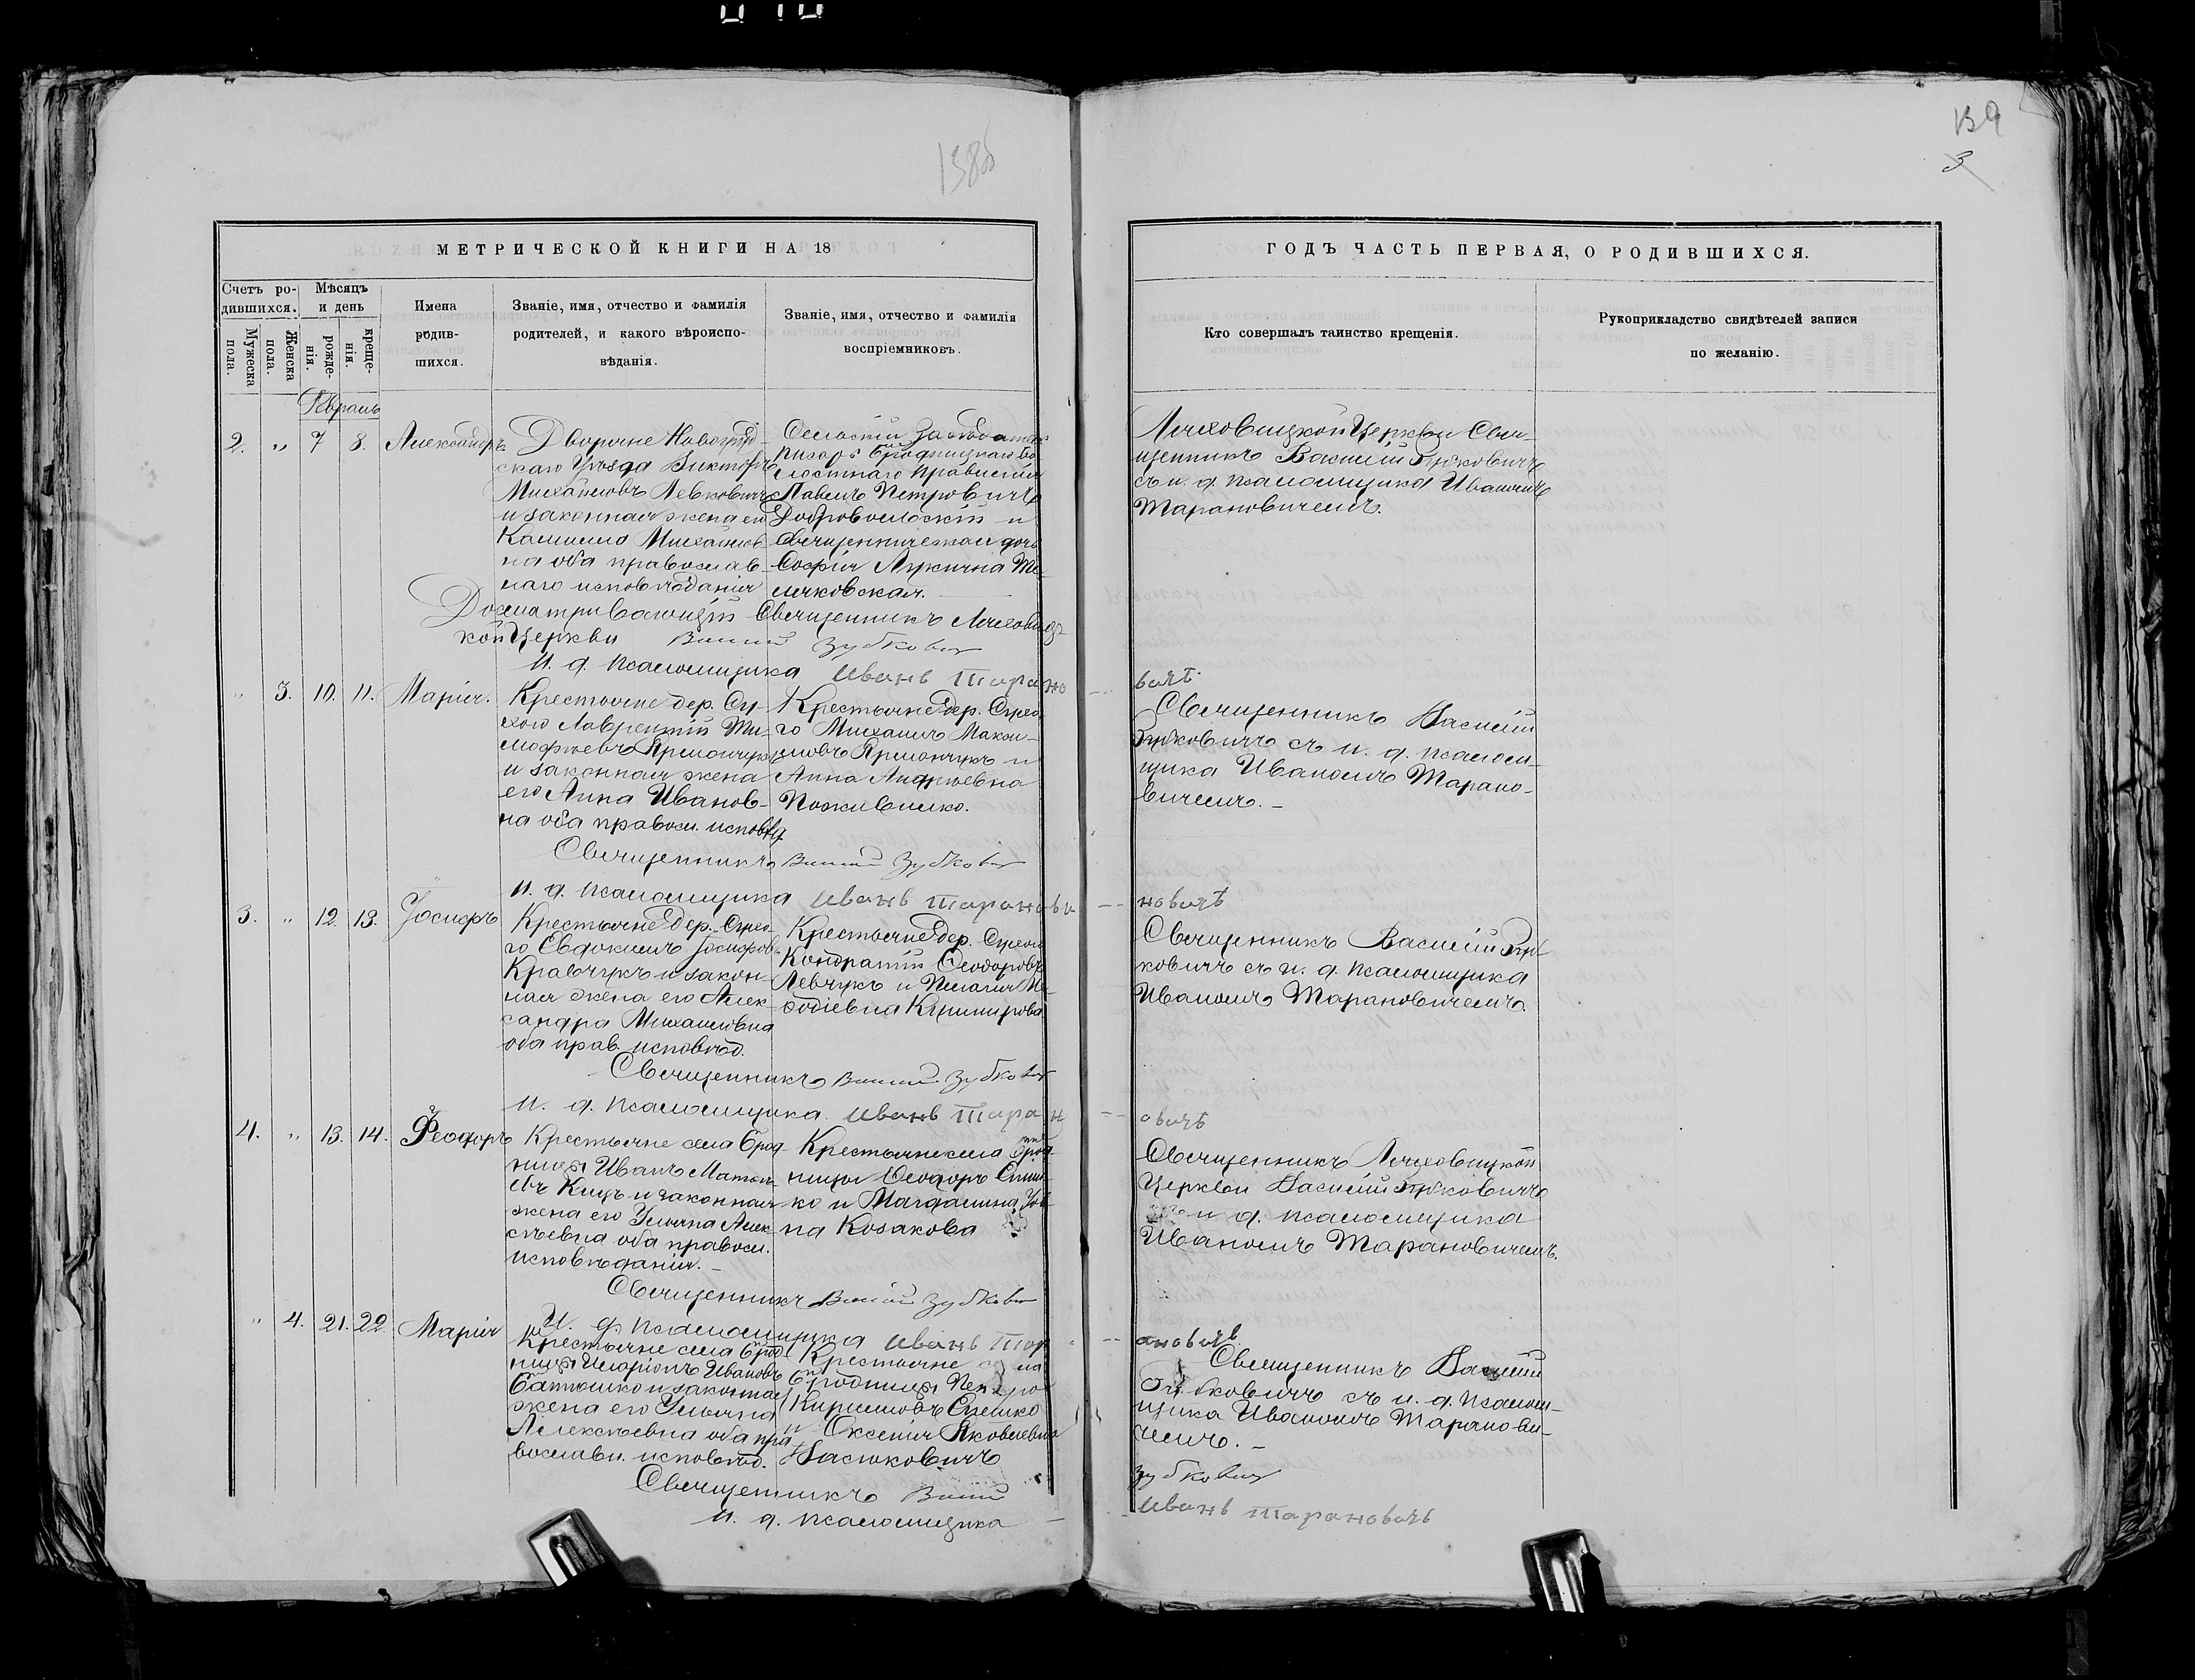 138об
139
3
МЕТРИЧЕСКОЙ КНИГИ НА 18
ГОДЪ ЧАСТЬ ПЕРВАЯ, О РОДИВШИХСЯ.
Счетъ ро-
дившихся.
Мужеска
пола.
Женска
пола.
Мѣсяцъ
и день
рожде-
нія.
креще-
нія.
Имена
родив-
шихся.
Званіе, имя, отчество и фамилія
родителей, и какого вѣроиспо-
вѣданія.
Званіе, имя, отчество и фамилія
воспріемниковъ.
Кто совершалъ таинство крещенія.
Рукоприкладство свидѣтелей записи
по желанію.
2. „ 7 8. Александръ
Дворяне Новогруд-
скаго Уѣзда Викторъ
Михайловъ Левковичъ
и законная жена его
Михайлов-
на оба православ-
наго исповѣданія
писарь Бродницкаго во-
лостнаго правленія
Павелъ Петровичъ
Добровольскій и
Священническая дочь
Софія Лукична
Ляховицкой Церкви Свя-
щенникъ Василій Зубковичъ
съ и. д. псаломщика Иваномъ
Тарановичемъ.
Досматривающій Священникъ Ляховиц-
кой Церкви Василій Зубкович
И. д. псаломщика Иванъ Тарано
вичъ
„ 3. 10. 11. Марія.
Крестьяне дер. Су-
хого Лаврентій Ти-
мофѣевъ Ярмончукъ
и законная жена
его Анна Иванов-
на оба правосл. исповѣд
Крестьяне дер. Сухо-
го Михаилъ Макси-
мовъ Ярмончукъ и
Анна Андреевна
Священникъ Василій
Зубковичъ съ и. д. псалом-
щика Иваномъ Тарано-
вичемъ. –
Священникъ Василий Зубкович
И. д. псаломщика Иванъ Таранови
новичъ
3. „ 12 13. Іосифъ
Крестьяне дер. Сухо-
го Евдокимъ Іосифовъ
Кравчукъ и закон-
ная жена его Алек-
сандра Михайловна
оба прав. исповѣд.
Крестьяне дер. Сухого
Кондратій Ѳеодоровъ
Левчукъ и Пелагія Ме-
ѳодіевна
Священникъ Василій Зуб-
ковичъ съ и. д. псаломщика
Иваномъ Тарановичемъ.
Священникъ Василий Зубкович
И. д. псаломщика. Иванъ Таран
овичъ
4. „ 13. 14. Ѳеодоръ
Крестьяне села Брод-
ницы Иванъ
Куцъ и законная
жена его Ульяна Алек-
сѣевна оба правосл.
исповѣданія. –
Крестьяне села Брод-
ницы Ѳеодоръ
ко и Магдалина
на Козакова
Священникъ Ляховицкой
Церкви Василій Зубковичъ
и д. псаломщика
Иваномъ Тарановичемъ.
Священникъ Василий Зубкович
И. д. псаломщика Иванъ Тар
ановичъ
„ 4. 21. 22. Марія
Крестьяне села Брод-
ницы Иларіонъ Ивановъ
Батюшко и законная
жена его Ульяна
Алексѣевна оба пра
вославн. исповѣд.
Крестьяне села
Бродницы Петро
Кириловъ
и Оксенія Яковлевна
Васюковичъ
Священникъ Василій
Зубковичъ съ и. д. псалом-
щика Иваномъ Таранови-
чемъ. –
Священникъ Василий
Зубкович
И. д. псаломщика
Иванъ Тарановичъ